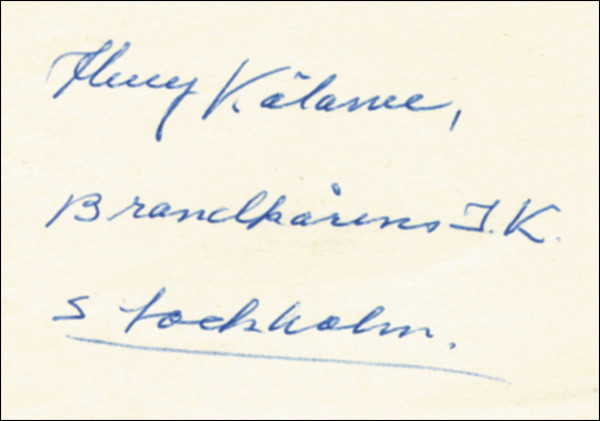 Henry Kälarne,
Brandkårens I.K.
Stockholm.